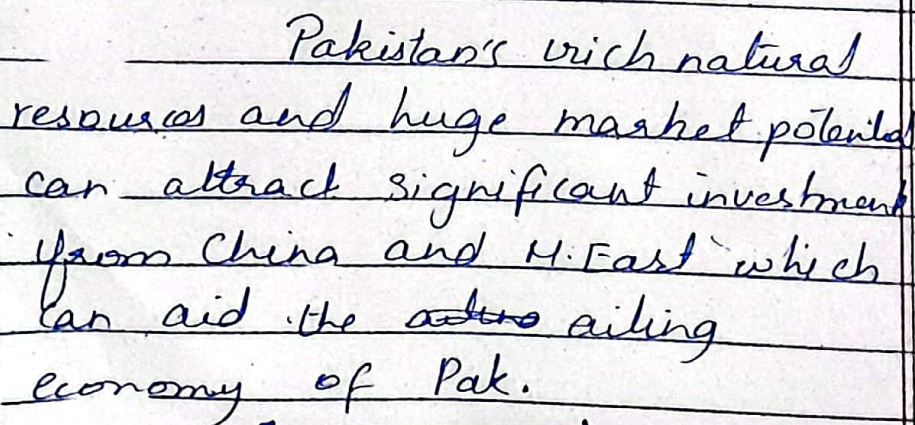 Pakistan's rich natural
resources and huge market potential
can attract significant investment
from China and M.East which
can aid the ailing
economy of Pak.